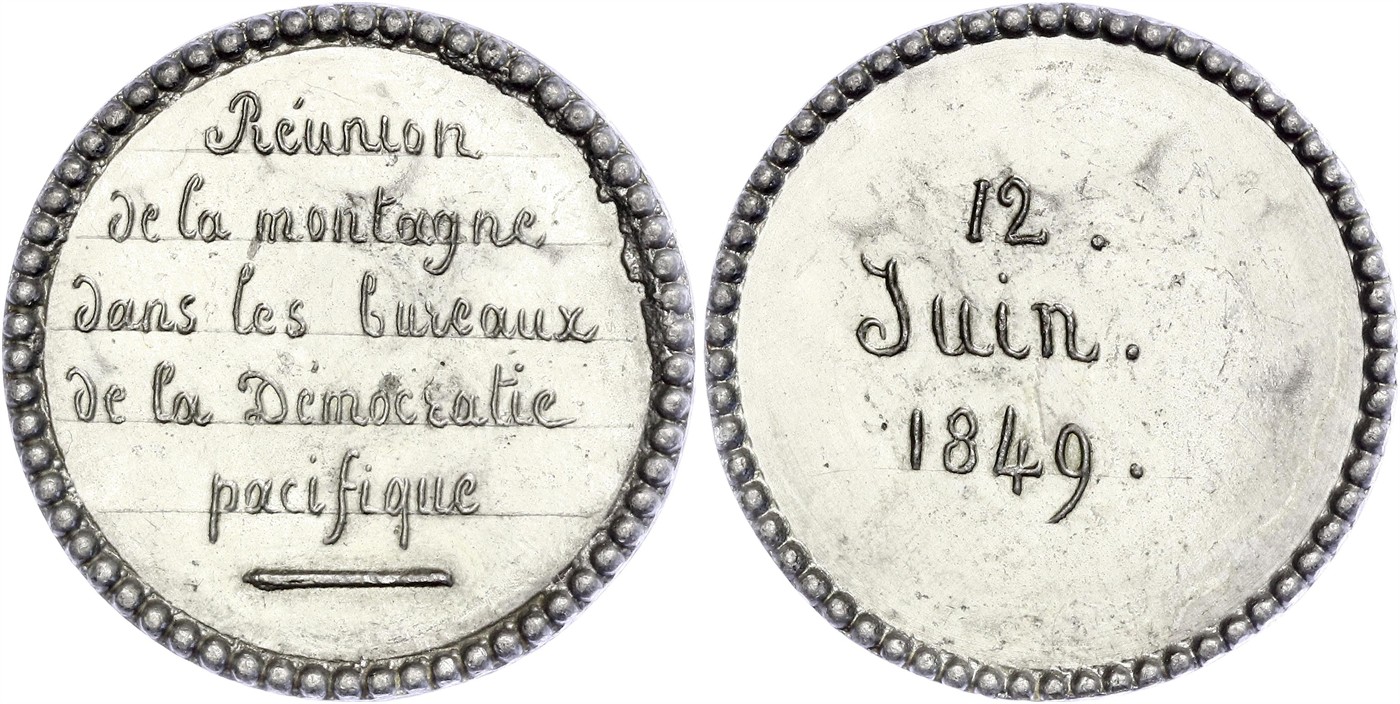 Réunion
de la montagne
dans les bureaux
de la Démocratie
pacifique
12.
Juin.
1849.